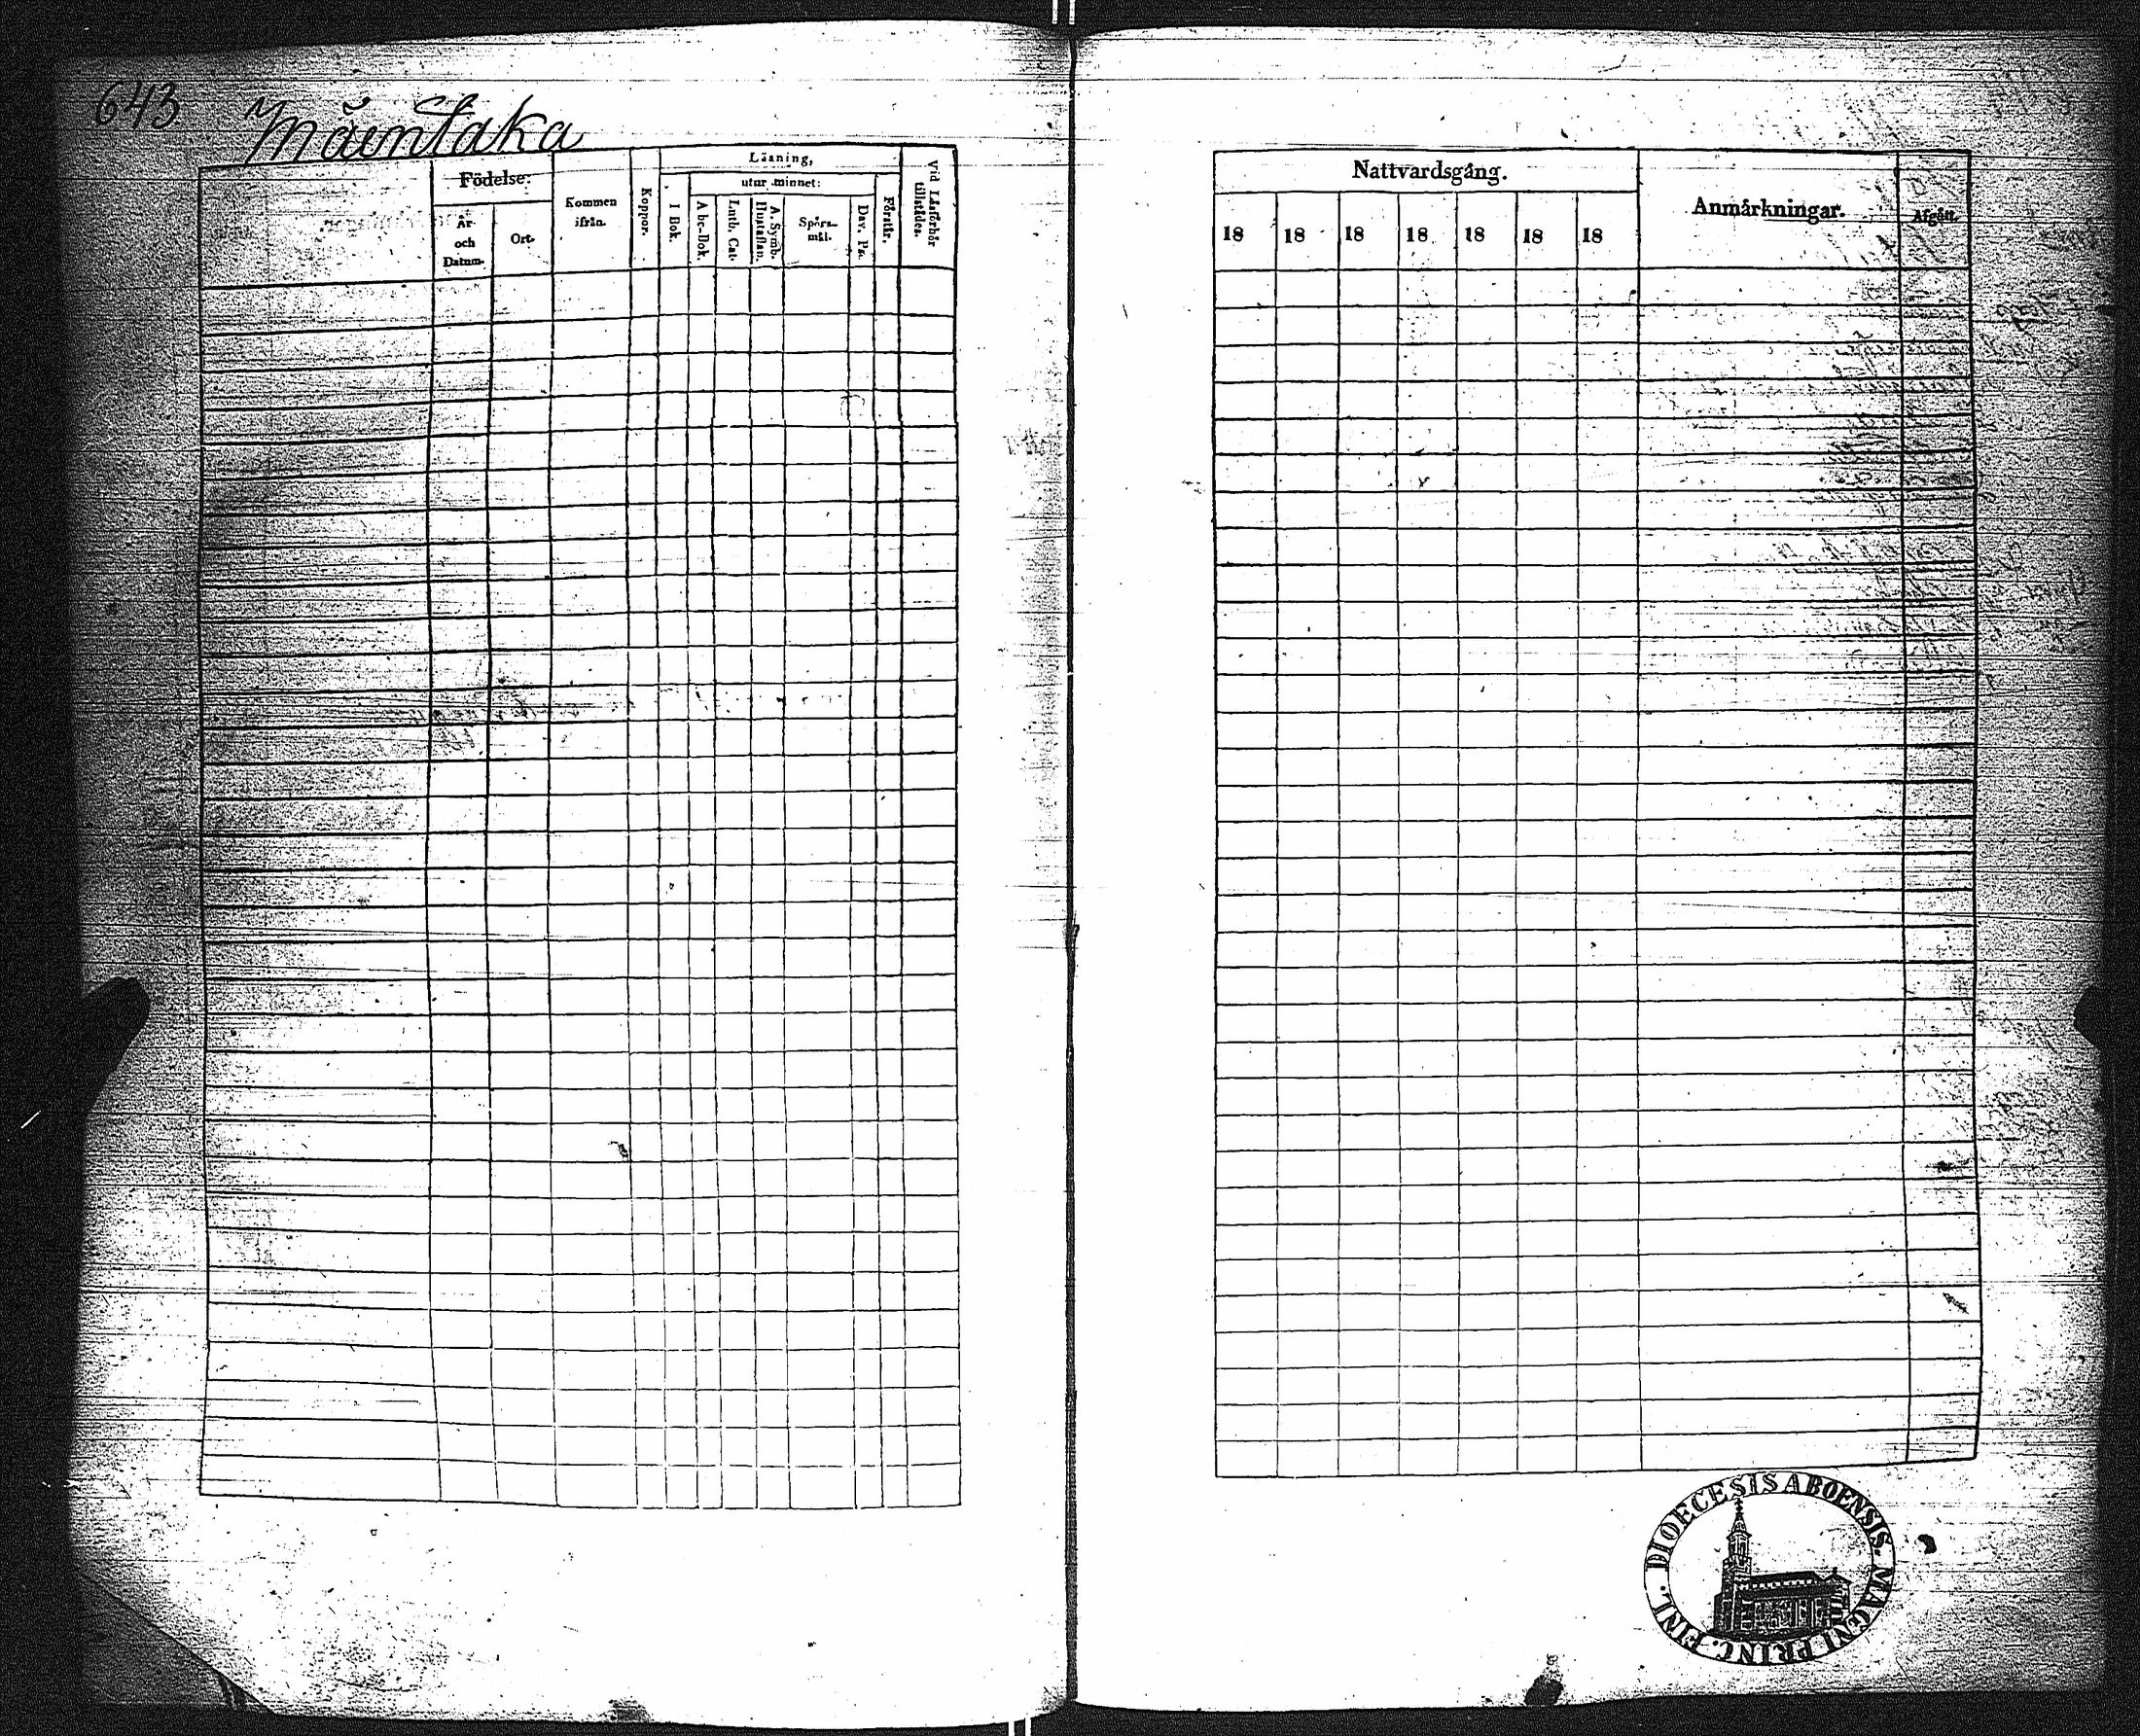 643 Mäentaka
Födelse:
År och Datum.
Ort.
Kommen ifrån.
Koppor.
Läsning,
I Bok.
utur minnet:
Abc-Bok.
Luth. Cat.
A. Symb. Hustaflan.
Spörs-mål.
Dav. Ps.
Förstår.
Vid Läsförhör tillstädes.
Nattvardsgång.
18 18 18 18 18 18 18
Anmärkningar.
Afgått.
DIOECESIS ABOENSIS. MAGNI PRINC. FINL.